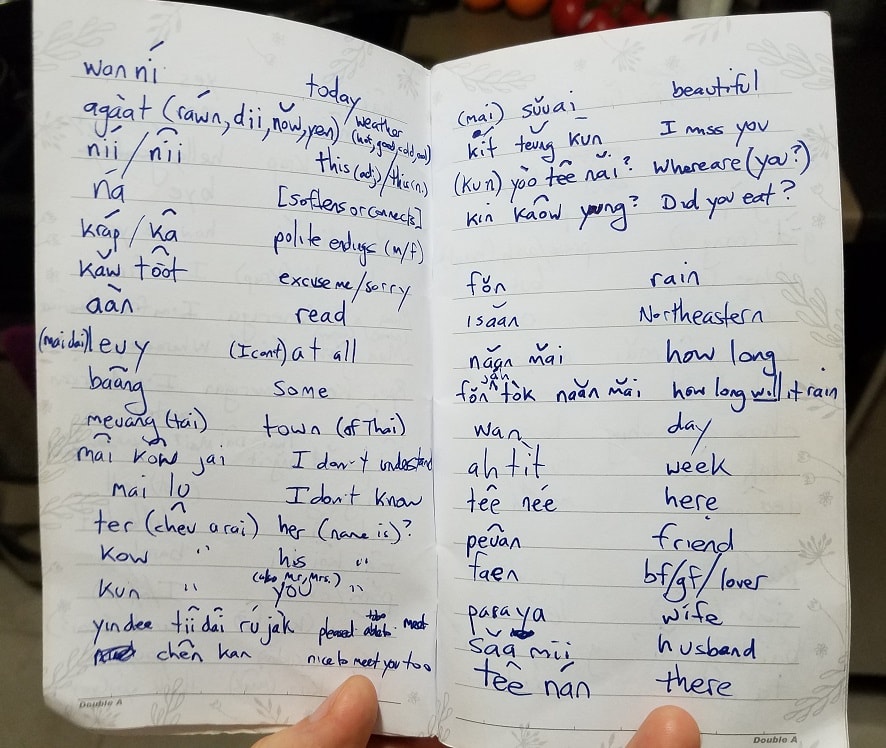 wan ní today
agàat (ráwn, dii, nǒw, yen) weather (hot, good, cold, cool)
níi / nîi this (adj) / this (n.)
ná [softens or connects]
kráp / kâ polite endings (m/f)
kǎw tôot excuse me/sorry
aàn read
(mai dai) leuy (I cant) at all
baâng some
meuang (tai) town (of Thai)
mâi kôw jai I don't understand
mai lu I don't know
ter (chêu arai) her (name is)?
kow " his "
(also Mr, Mrs.)
kun " you "
yindee tîi dâi rú jàk pleased to be able to meet
chên kan nice to meet you too
Double A
(mai) sǔuai beautiful
kít těung kun I miss you
(kun) yòo têe nǎi? Where are (you?)
kin kaôw yung? Did you eat?
fǒn rain
isaǎn Northeastern
naǎn mǎi how long
jàh
fǒn tòk naǎn mǎi how long will it rain
wan day
ah tít week
têe née here
peûan friend
faen bf/gf/lover
paraya wife
sǎa mii husband
têe nán there
Double A